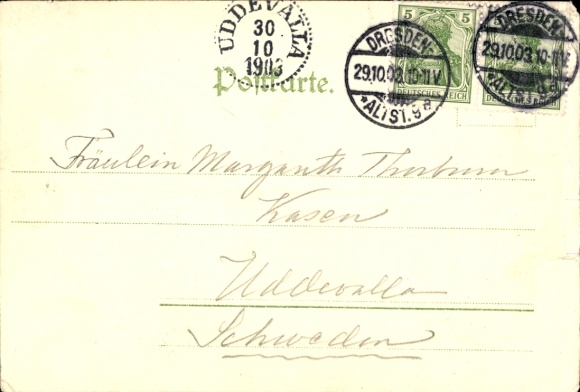 UDDEVALLA
30
10
1903
Postkarte.
5 5
DEUTSCHES REICH
DRESDEN-
29.10.03.10-11V.
*ALTST.9a
DRESDEN-
29.10.03.10-11V.
*ALTST.9a
Fräulein Margareth Thorburn
Kasen
Uddevalla
Schweden